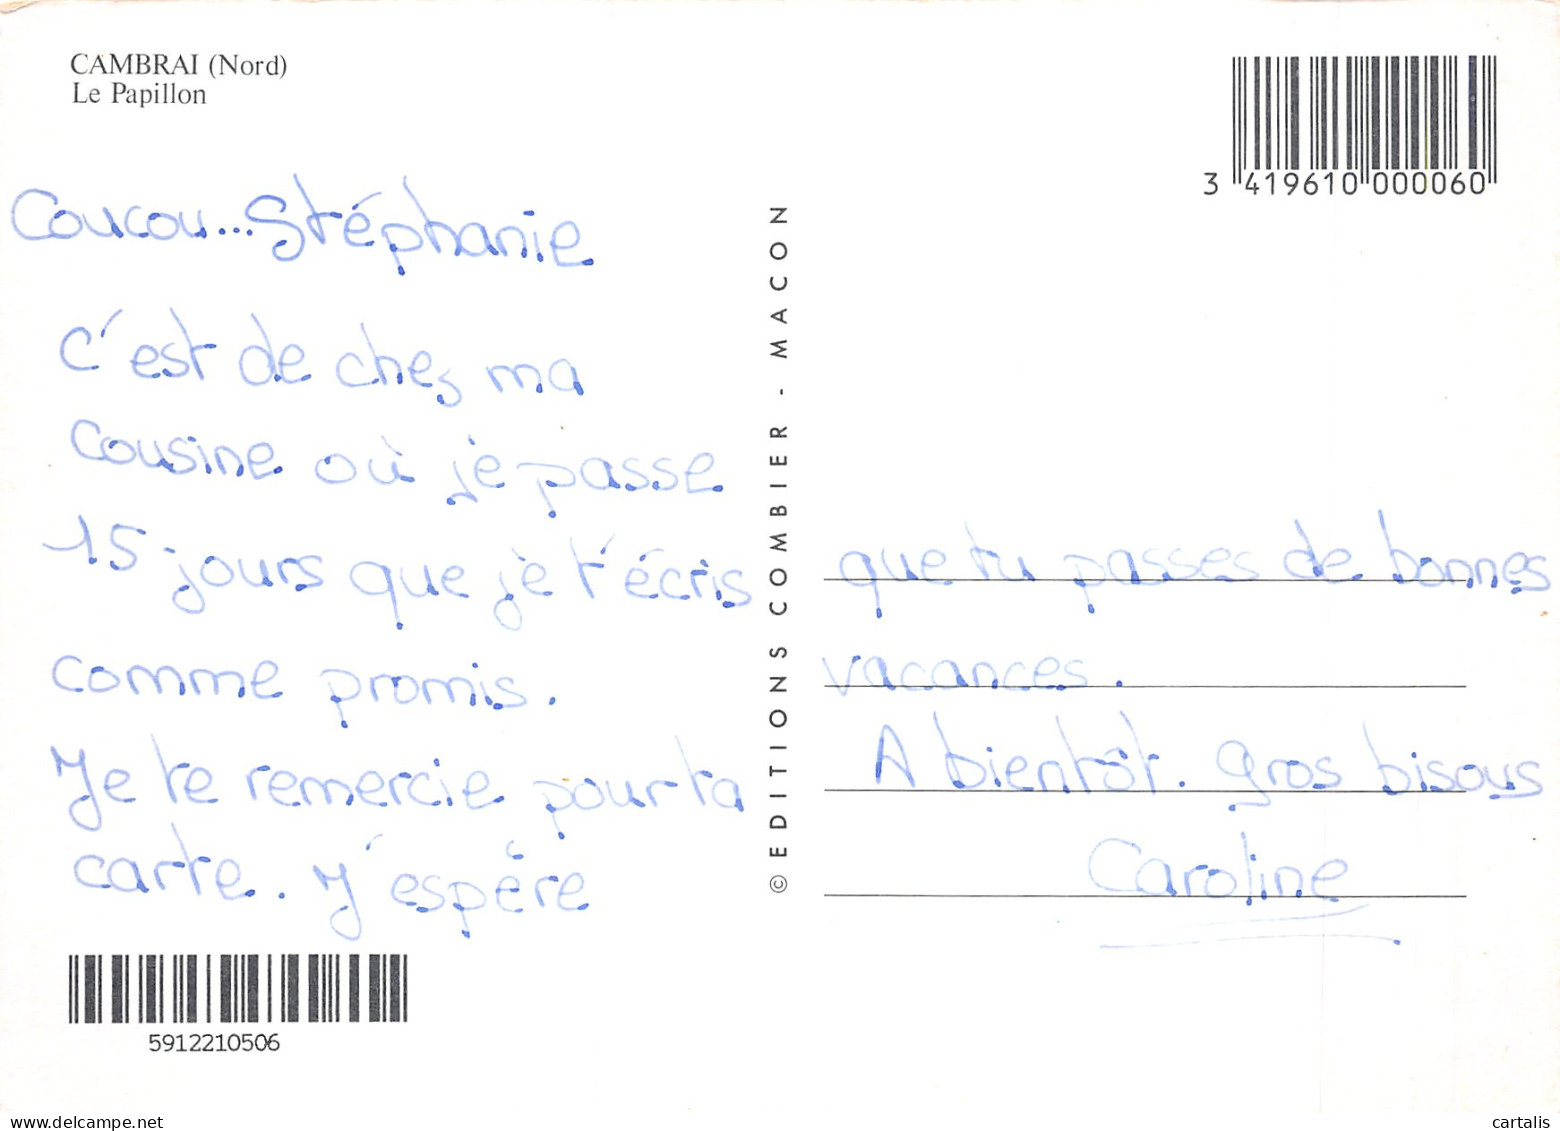 CAMBRAI (Nord)
Le Papillon
3 419610 000060
Coucou...Stéphanie
C'est de chez ma
cousine où je passe
15 jours que je t'écris
comme promis.
Je te remercie pour ta
carte. J'espère
5912210506
© EDITIONS COMBIER - MACON
que tu passes de bonnes
vacances.
A bientôt. gros bisous
Caroline
www.delcampe.net
cartalis